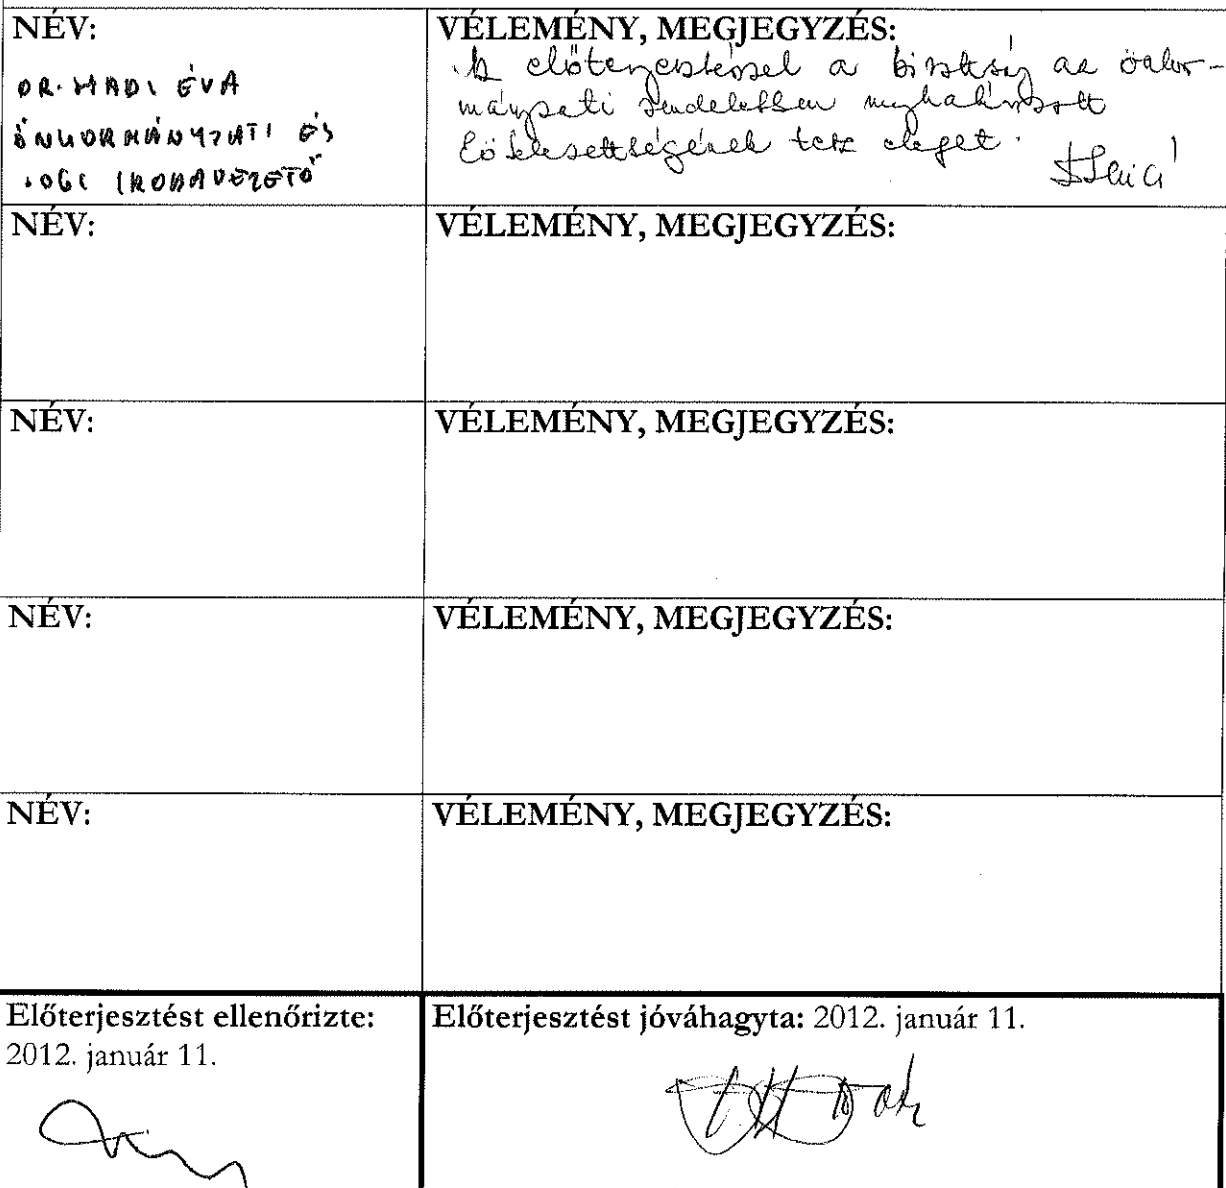 NÉV:
DR. HADI ÉVA
ÖNKORMÁNYZATI ÉS
JOGI IRODAVEZETŐ
VÉLEMÉNY, MEGJEGYZÉS:
Az előterjesztéssel a bizottság az önkor-
mányzati rendeletben meghatározott
kötelezettségének tesz eleget.
NÉV:
VÉLEMÉNY, MEGJEGYZÉS:
NÉV:
VÉLEMÉNY, MEGJEGYZÉS:
NÉV:
VÉLEMÉNY, MEGJEGYZÉS:
NÉV:
VÉLEMÉNY, MEGJEGYZÉS:
Előterjesztést ellenőrizte:
2012. január 11.
Előterjesztést jóváhagyta: 2012. január 11.